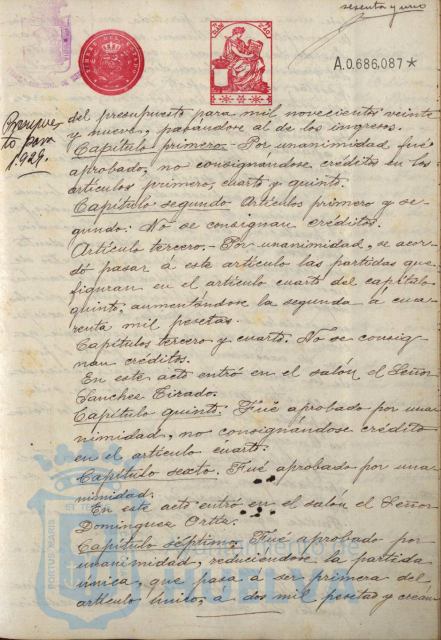 sesenta y uno
A.0.686.087*
Presupues-
to para
1929.
del presupuesto para mil novecientos veinte
y nueve, pasandose al de los ingresos.
Capítulo primero.- Por unanimidad fué
aprobado, no consignandose crédito en los
artículos primero, cuarto y quinto.
Capítulo segundo. Artículos primero y se-
gundo: No se consignan créditos.
Artículo tercero.- Por unanimidad, se acor-
dó pasar á este artículo las partidas que
figuran en el artículo cuarto del capítulo
quinto, aumentándose la segunda á cua-
renta mil pesetas.
Capítulos tercero y cuarto. No se consig-
nan créditos.
En este acto entró en el salón el Señor
Sanchez Tirado.
Capítulo quinto. Fué aprobado por una-
nimidad, no consignándose crédito
en el artículo cuarto.
Capítulo sexto. Fué aprobado por una-
nimidad.
En este acto entró en el salón el Señor
Dominguez Ortiz.
Capítulo séptimo. Fué aprobado por
unanimidad, reduciéndose la partida
única, que pasa á ser primera del
artículo único, a dos mil pesetas y crean
PORTUS MARIS